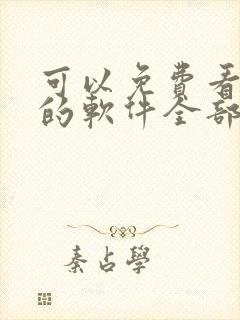 可以免費看
的軟件全部
秦占學